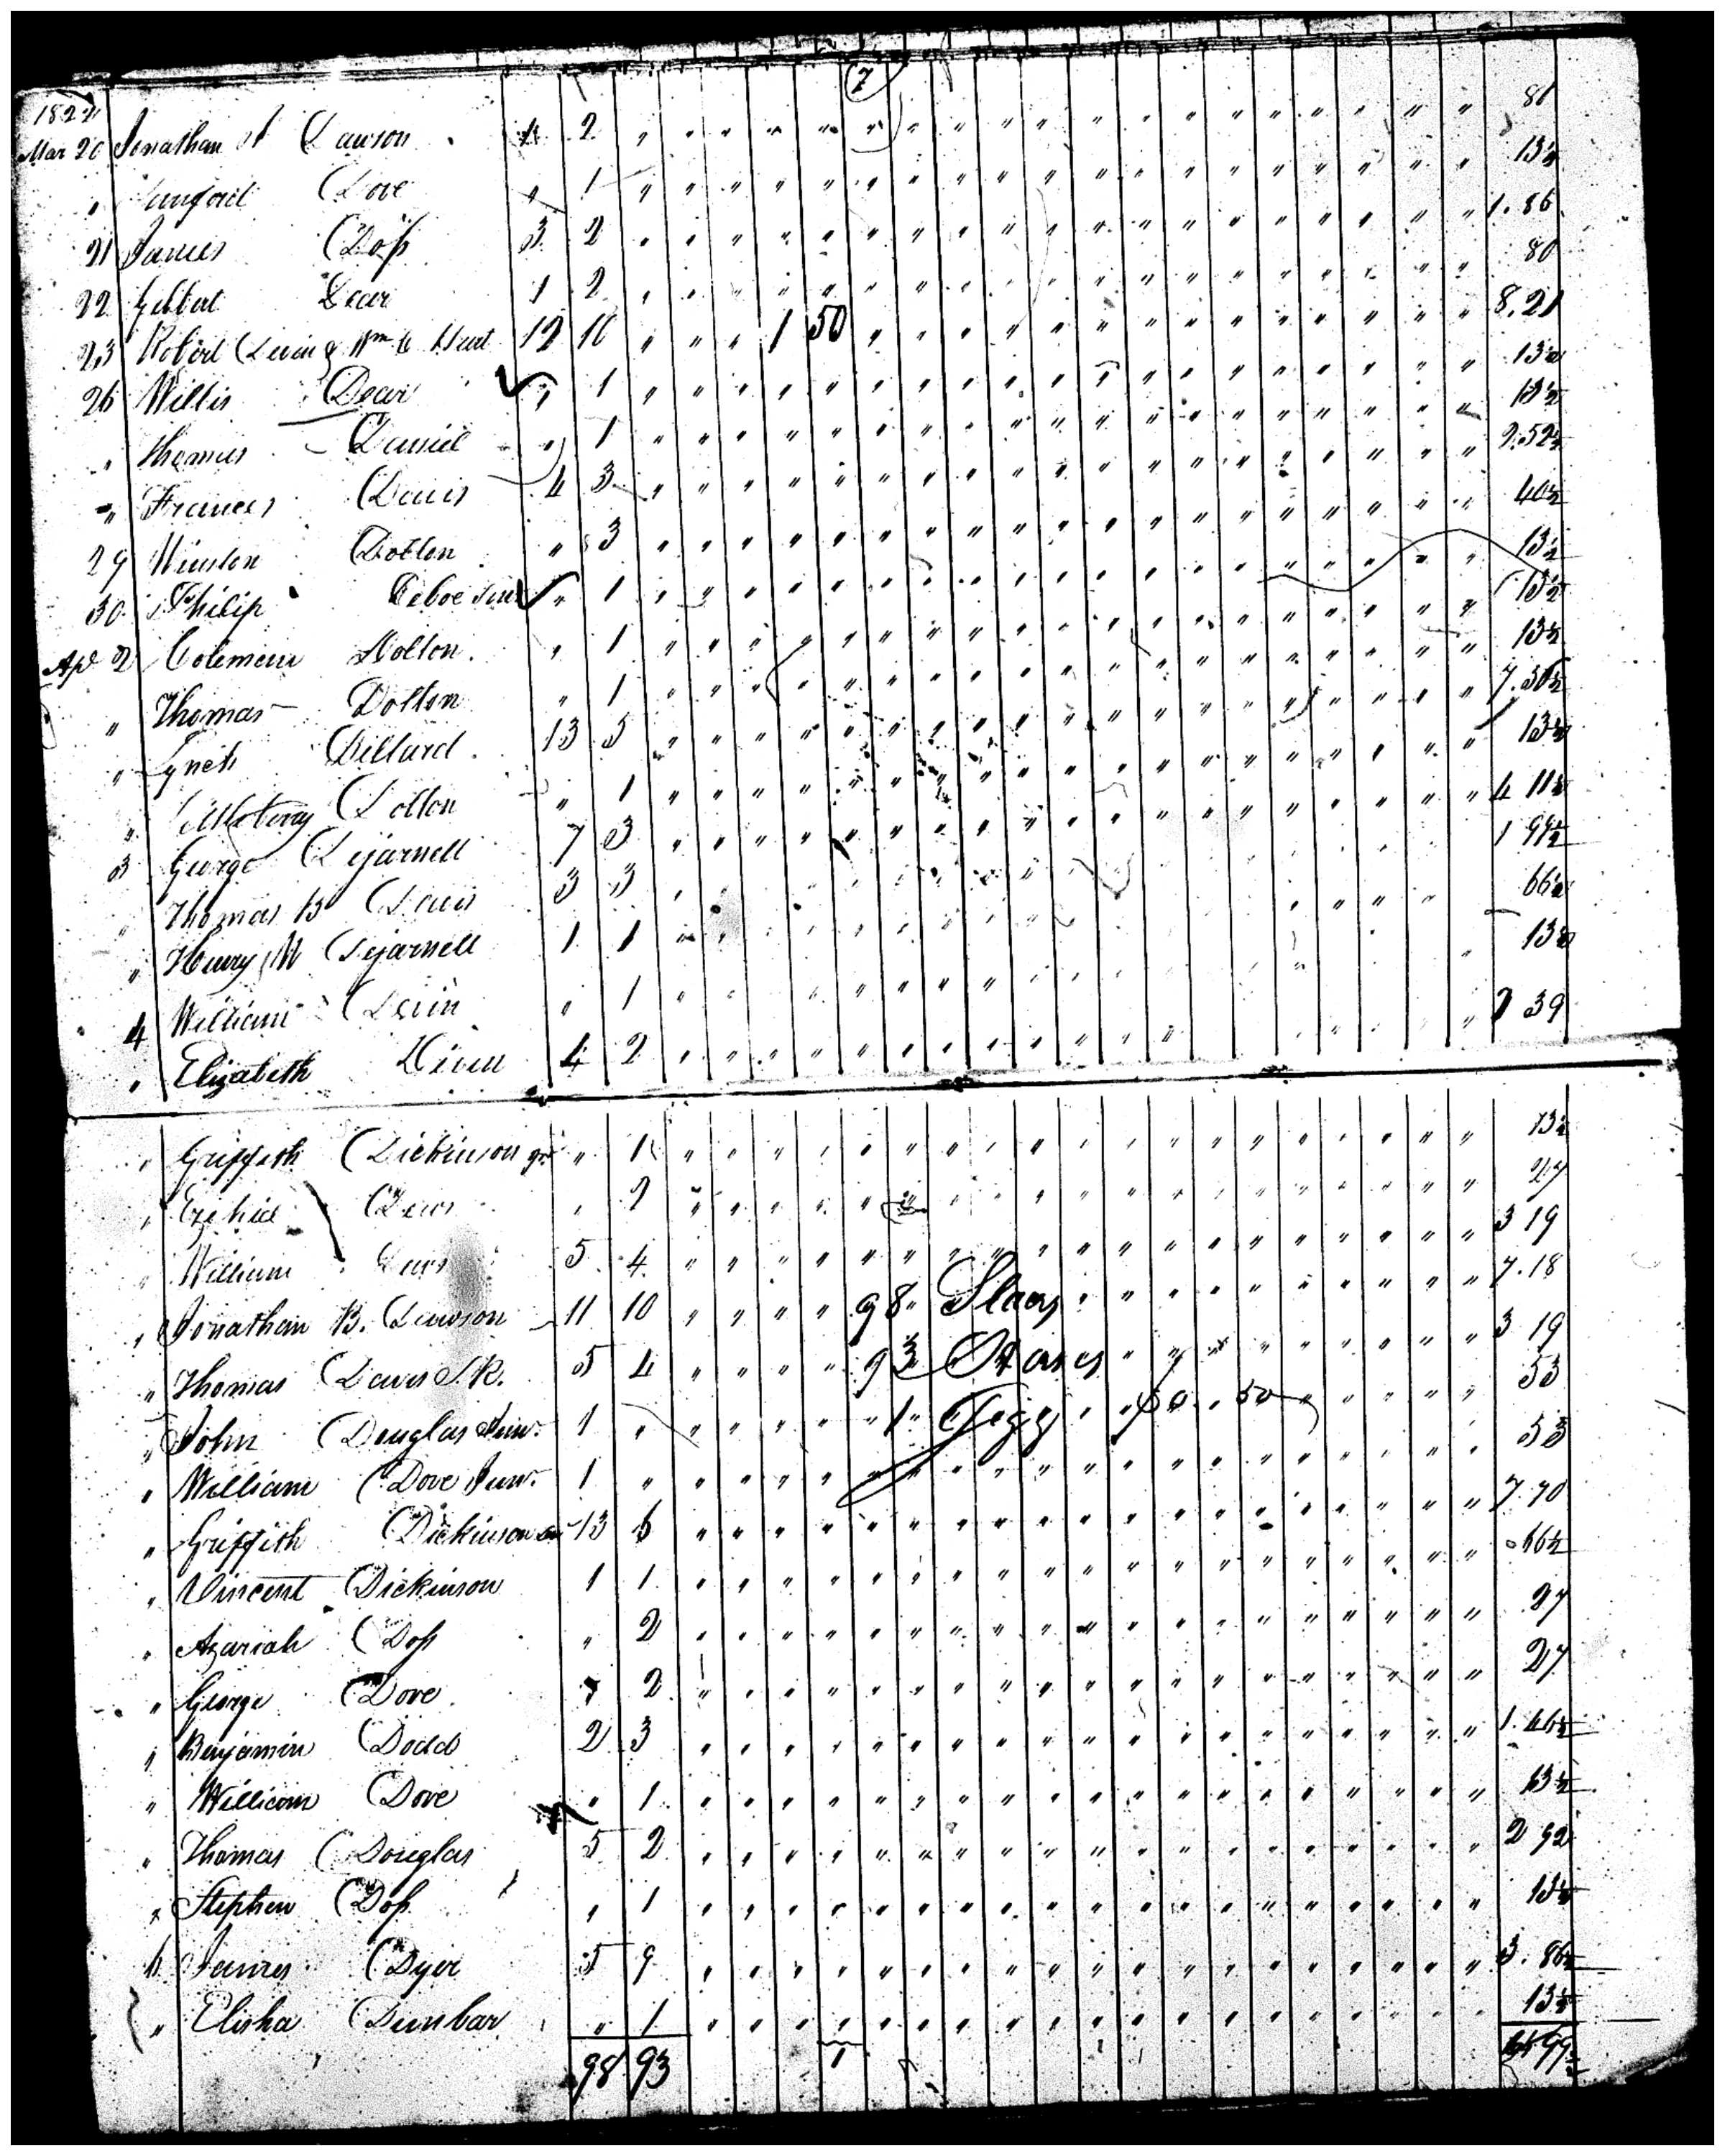 7
1822
Mar 20 Jonathan Lawson 1 2 " " " " " " " " " " " " " " " " " " " 80
" Dove " 1 " " " " " " " " " " " " " " " " " " " 13½
21 James Doss 3 2 " " " " " " " " " " " " " " " " " " " 1.86
22 Gilbert Dear 1 2 " " " " " " " " " " " " " " " " " " " 80
23 Robert Devin & Wm Hurt 12 10 " " " 1 50 " " " " " " " " " " " " " " 8.21
26 Willis Dear " 1 " " " " " " " " " " " " " " " " " " " 13½
" Thomas Daniel " 1 " " " " " " " " " " " " " " " " " " " 13½
" Frances Davis 4 3 " " " " " " " " " " " " " " " " " " " 2.52½
29 Winston Dotton " 3 " " " " " " " " " " " " " " " " " " " 40½
30 Philip Deboe Sen " 1 " " " " " " " " " " " " " " " " " " " 13½
Ap 2 Coleman Dolton " 1 " " " " " " " " " " " " " " " " " " " 13½
" Thomas Dolton " 1 " " " " " " " " " " " " " " " " " " " 13½
" Lynch Dillard 13 5 " " " " " " " " " " " " " " " " " " " 7.56½
" Dotton " 1 " " " " " " " " " " " " " " " " " " " 13½
3 George Dejarnell 7 3 " " " " " " " " " " " " " " " " " " " 4 11½
" Thomas B Davis 3 3 " " " " " " " " " 1 99½
" Henry W Dejarnell 1 1 " " " " " " " " " 66½
4 William Devin " 1 " " " " " " " " " 13½
" Elizabeth Devin 4 2 " " " " " " " " " " " " " " " " 2 39
" Griffith Dickinson jr " 1 " " " " " " " " " " " " " " " " " " " 13½
" Ezekiel Dews " 2 " " " " " " " " " " " " " " " " " " " 27
" William Dews 5 4 " " " " " " " " " " " " " " " " " " " 3 19
" Jonathan B. Dawson 11 10 " " " " 98 Slaves " " " " " " " " " " 7.18
" Thomas Davis S.R. 5 4 " " " " 93 Horses " " " " " " " " " 3 19
" John Douglas Junr. 1 " " " " " 1 Gigg " " 50 " 50 " " " " " 53
" William Dove Junr. 1 " " " " " " " " " " " " " " " " " " " " 53
" Griffith Dickinson Sen 13 6 " " " " " " " " " " " " " " " " " " " 7.70
" Vincent Dickinson 1 1 " " " " " " " " " " " " " " " " " " " 66½
" Azariah Doss " 2 " " " " " " " " " " " " " " " " " " " 27
" George Dove " 2 " " " " " " " " " " " " " " " " " " " 27
" Benjamin Dodd 2 3 " " " " " " " " " " " " " " " " " " " 1.46½
" William Dove " 1 " " " " " " " " " " " " " " " " " " " 13½
" Thomas Douglas 5 2 " " " " " " " " " " " " " " " " " " " 2 92
" Stephen Doss " 1 " " " " " " " " " " " " " " " " " " " 13½
" James Dyer 5 9 " " " " " " " " " " " " " " " " " " " 3.86½
" Elisha Dunbar " 1 " " " " " " " " " " " " " " " " " " " 13½
98 93 1